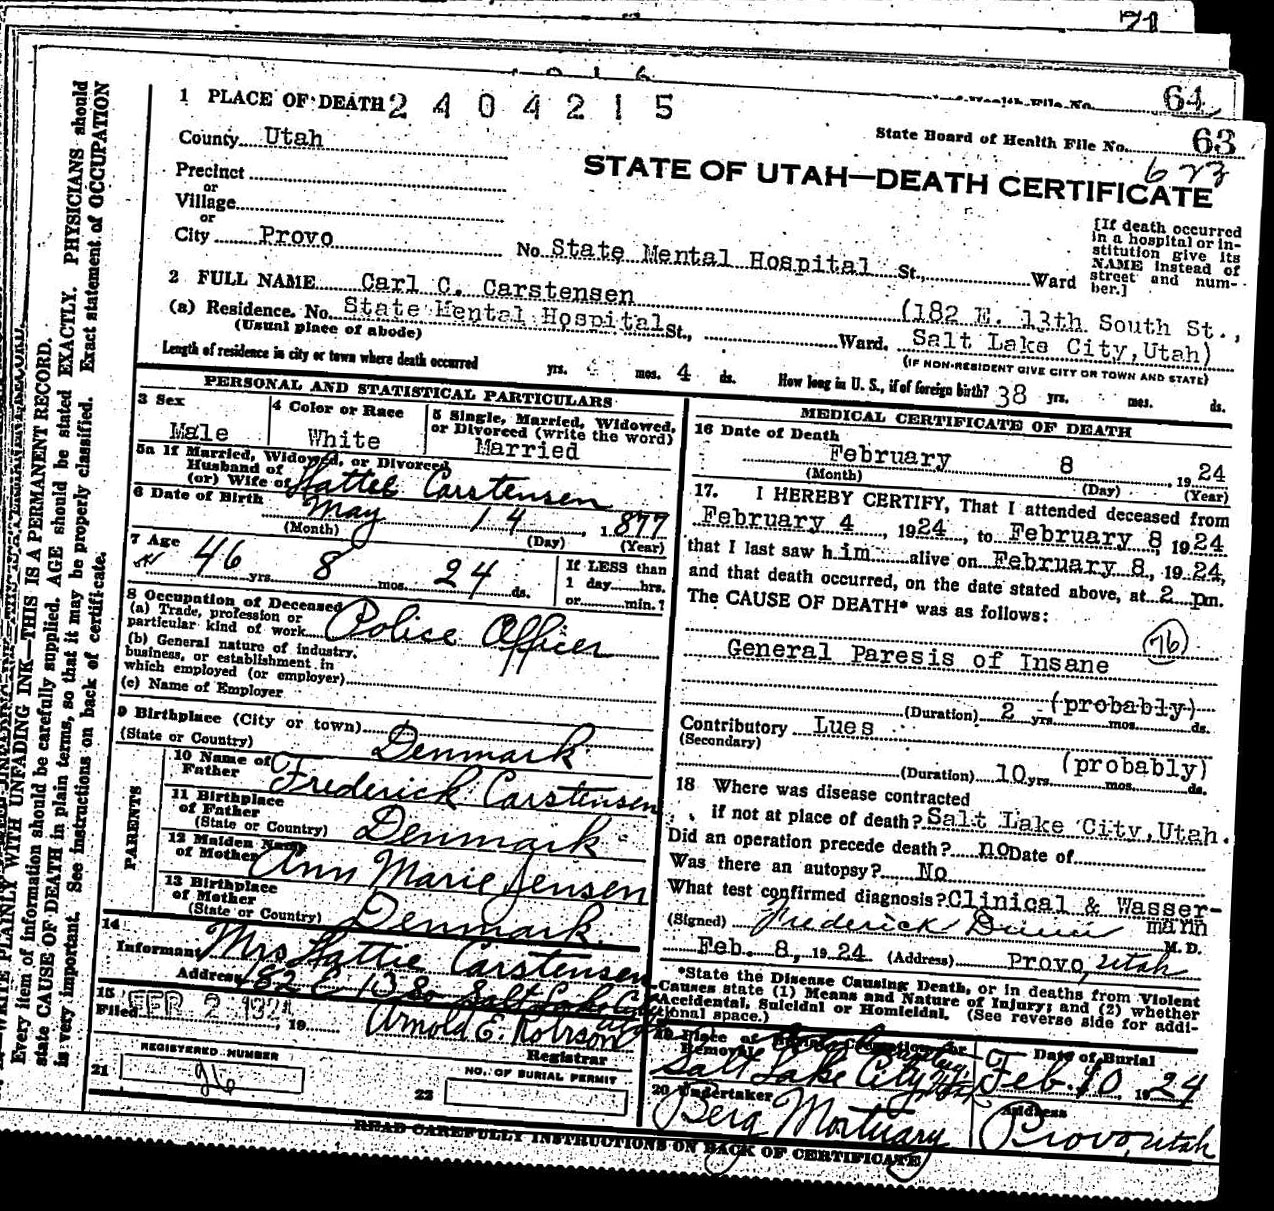 71
64
1 PLACE OF DEATH 2404215
State Board of Health File No. 63
623
County Utah
STATE OF UTAH—DEATH CERTIFICATE
Precinct
or
Village
or
City Provo No. State Mental Hospital St., Ward
[If death occurred in a hospital or institution give its NAME instead of street and number.]
2 FULL NAME Carl C. Carstensen
(a) Residence. No. State Mental Hospital St., Ward. (182 E. 13th South St., Salt Lake City, Utah)
(Usual place of abode)
(IF NON-RESIDENT GIVE CITY OR TOWN AND STATE)
Length of residence in city or town where death occurred yrs. mos. 4 ds. How long in U. S., if of foreign birth? 38 yrs. mos. ds.
PERSONAL AND STATISTICAL PARTICULARS
3 Sex Male
4 Color or Race White
5 Single, Married, Widowed, or Divorced (write the word) Married
5a If Married, Widowed, or Divorced
Husband of
(or) Wife of Hattie Carstensen
6 Date of Birth May 14, 1877
(Month) (Day) (Year)
7 Age 46 yrs. 8 mos. 24 ds.
If LESS than
1 day hrs.
or min.?
8 Occupation of Deceased
(a) Trade, profession or
particular kind of work Police Officer
(b) General nature of industry,
business, or establishment in
which employed (or employer)
(c) Name of Employer
9 Birthplace (City or town)
(State or Country) Denmark
PARENTS
10 Name of Father Frederick Carstensen
11 Birthplace of Father
(State or Country) Denmark
12 Maiden Name of Mother Ann Marie Jensen
13 Birthplace of Mother
(State or Country) Denmark.
14
Informant Mrs Hattie Carstensen
Address 182 E 13 So Salt Lake City
15
Filed FEB 2 1924, 19
Arnold E. Robison
Registrar
REGISTERED NUMBER
21
NO. OF BURIAL PERMIT
22
MEDICAL CERTIFICATE OF DEATH
16 Date of Death
February 8 1924
(Month) (Day) (Year)
17. I HEREBY CERTIFY, That I attended deceased from
February 4, 1924, to February 8, 1924
that I last saw him alive on February 8, 1924,
and that death occurred, on the date stated above, at 2 pm.
The CAUSE OF DEATH* was as follows:
76
General Paresis of Insane
(Duration) 2 yrs. (probably) mos. ds.
Contributory Lues
(Secondary)
(Duration) 10 yrs. (probably) mos. ds.
18 Where was disease contracted
if not at place of death? Salt Lake City, Utah.
Did an operation precede death? no Date of
Was there an autopsy? No
What test confirmed diagnosis? Clinical & Wassermann
(Signed) Frederick Dunn M.D.
Feb. 8, 1924 (Address) Provo, Utah
*State the Disease Causing Death, or in deaths from Violent
Causes state (1) Means and Nature of Injury; and (2) whether
Accidental, Suicidal or Homicidal. (See reverse side for additional space.)
19 Place of Burial, Cremation, or Removal
Salt Lake City
Date of Burial
Feb. 10, 1924
20 Undertaker
Berg Mortuary
Address
Provo, Utah
READ CAREFULLY INSTRUCTIONS ON BACK OF CERTIFICATE
WRITE PLAINLY WITH UNFADING INK—THIS IS A PERMANENT RECORD.
Every item of information should be carefully supplied. AGE should be stated EXACTLY. PHYSICIANS should
state CAUSE OF DEATH in plain terms, so that it may be properly classified. Exact statement of OCCUPATION
is very important. See instructions on back of certificate.